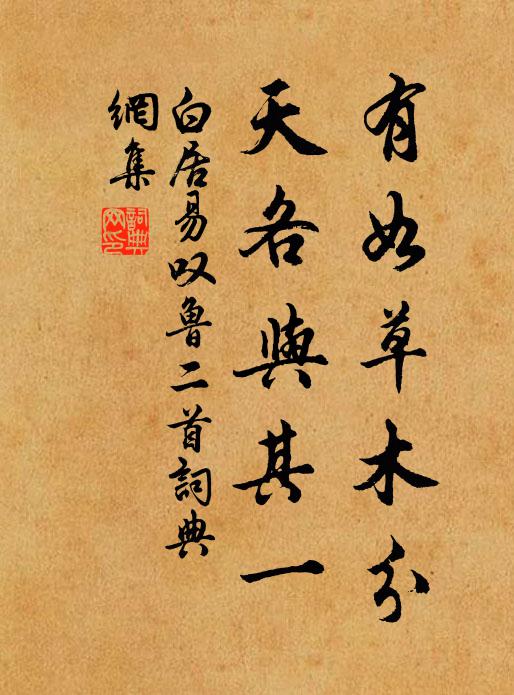 有如草木分
天各與其一
白居易叹魯二首詞典
網集
詞典
网印